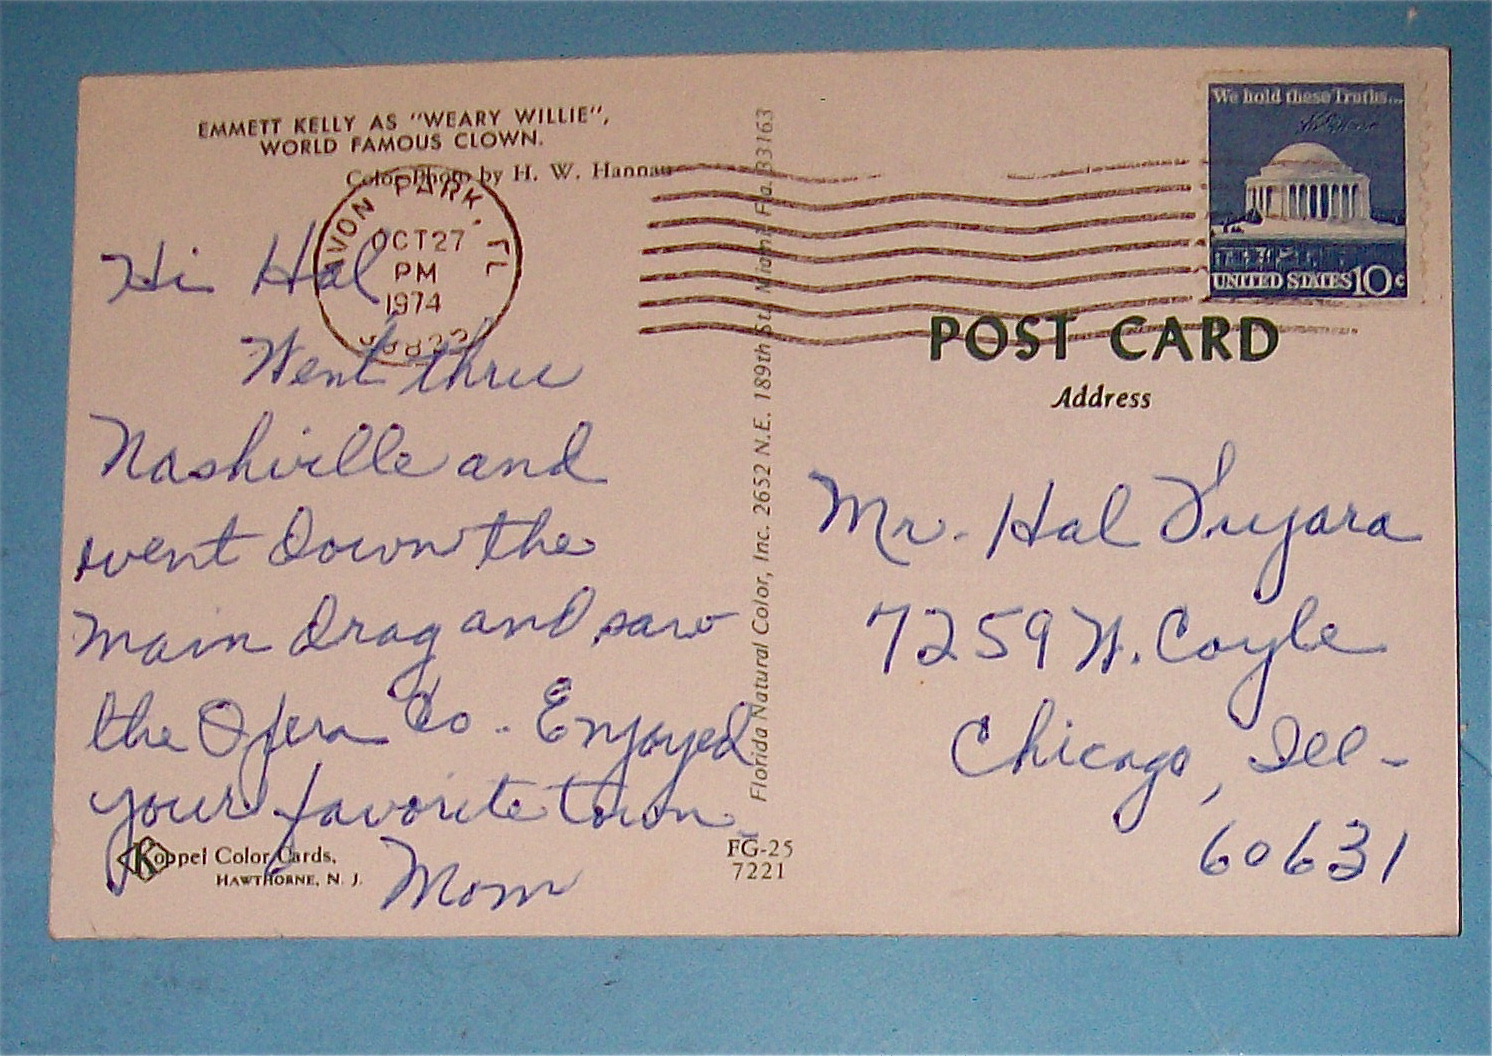 EMMETT KELLY AS "WEARY WILLIE",
WORLD FAMOUS CLOWN.
Color Photo by H. W. Hannau
AVON PARK, FL
OCT 27
PM
1974
33825
Hi Hal
Went thru
Nashville and
went down the
main drag and saw
the Opera Co. Enjoyed
your favorite town
Mom
Koppel Color Cards,
HAWTHORNE, N. J.
FG-25
7221
Florida Natural Color, Inc. 2652 N.E. 189th St. Miami, Fla. 33163
We hold these Truths...
UNITED STATES 10c
POST CARD
Address
Mr. Hal
7259 W. Coyle
Chicago, Ill-
60631